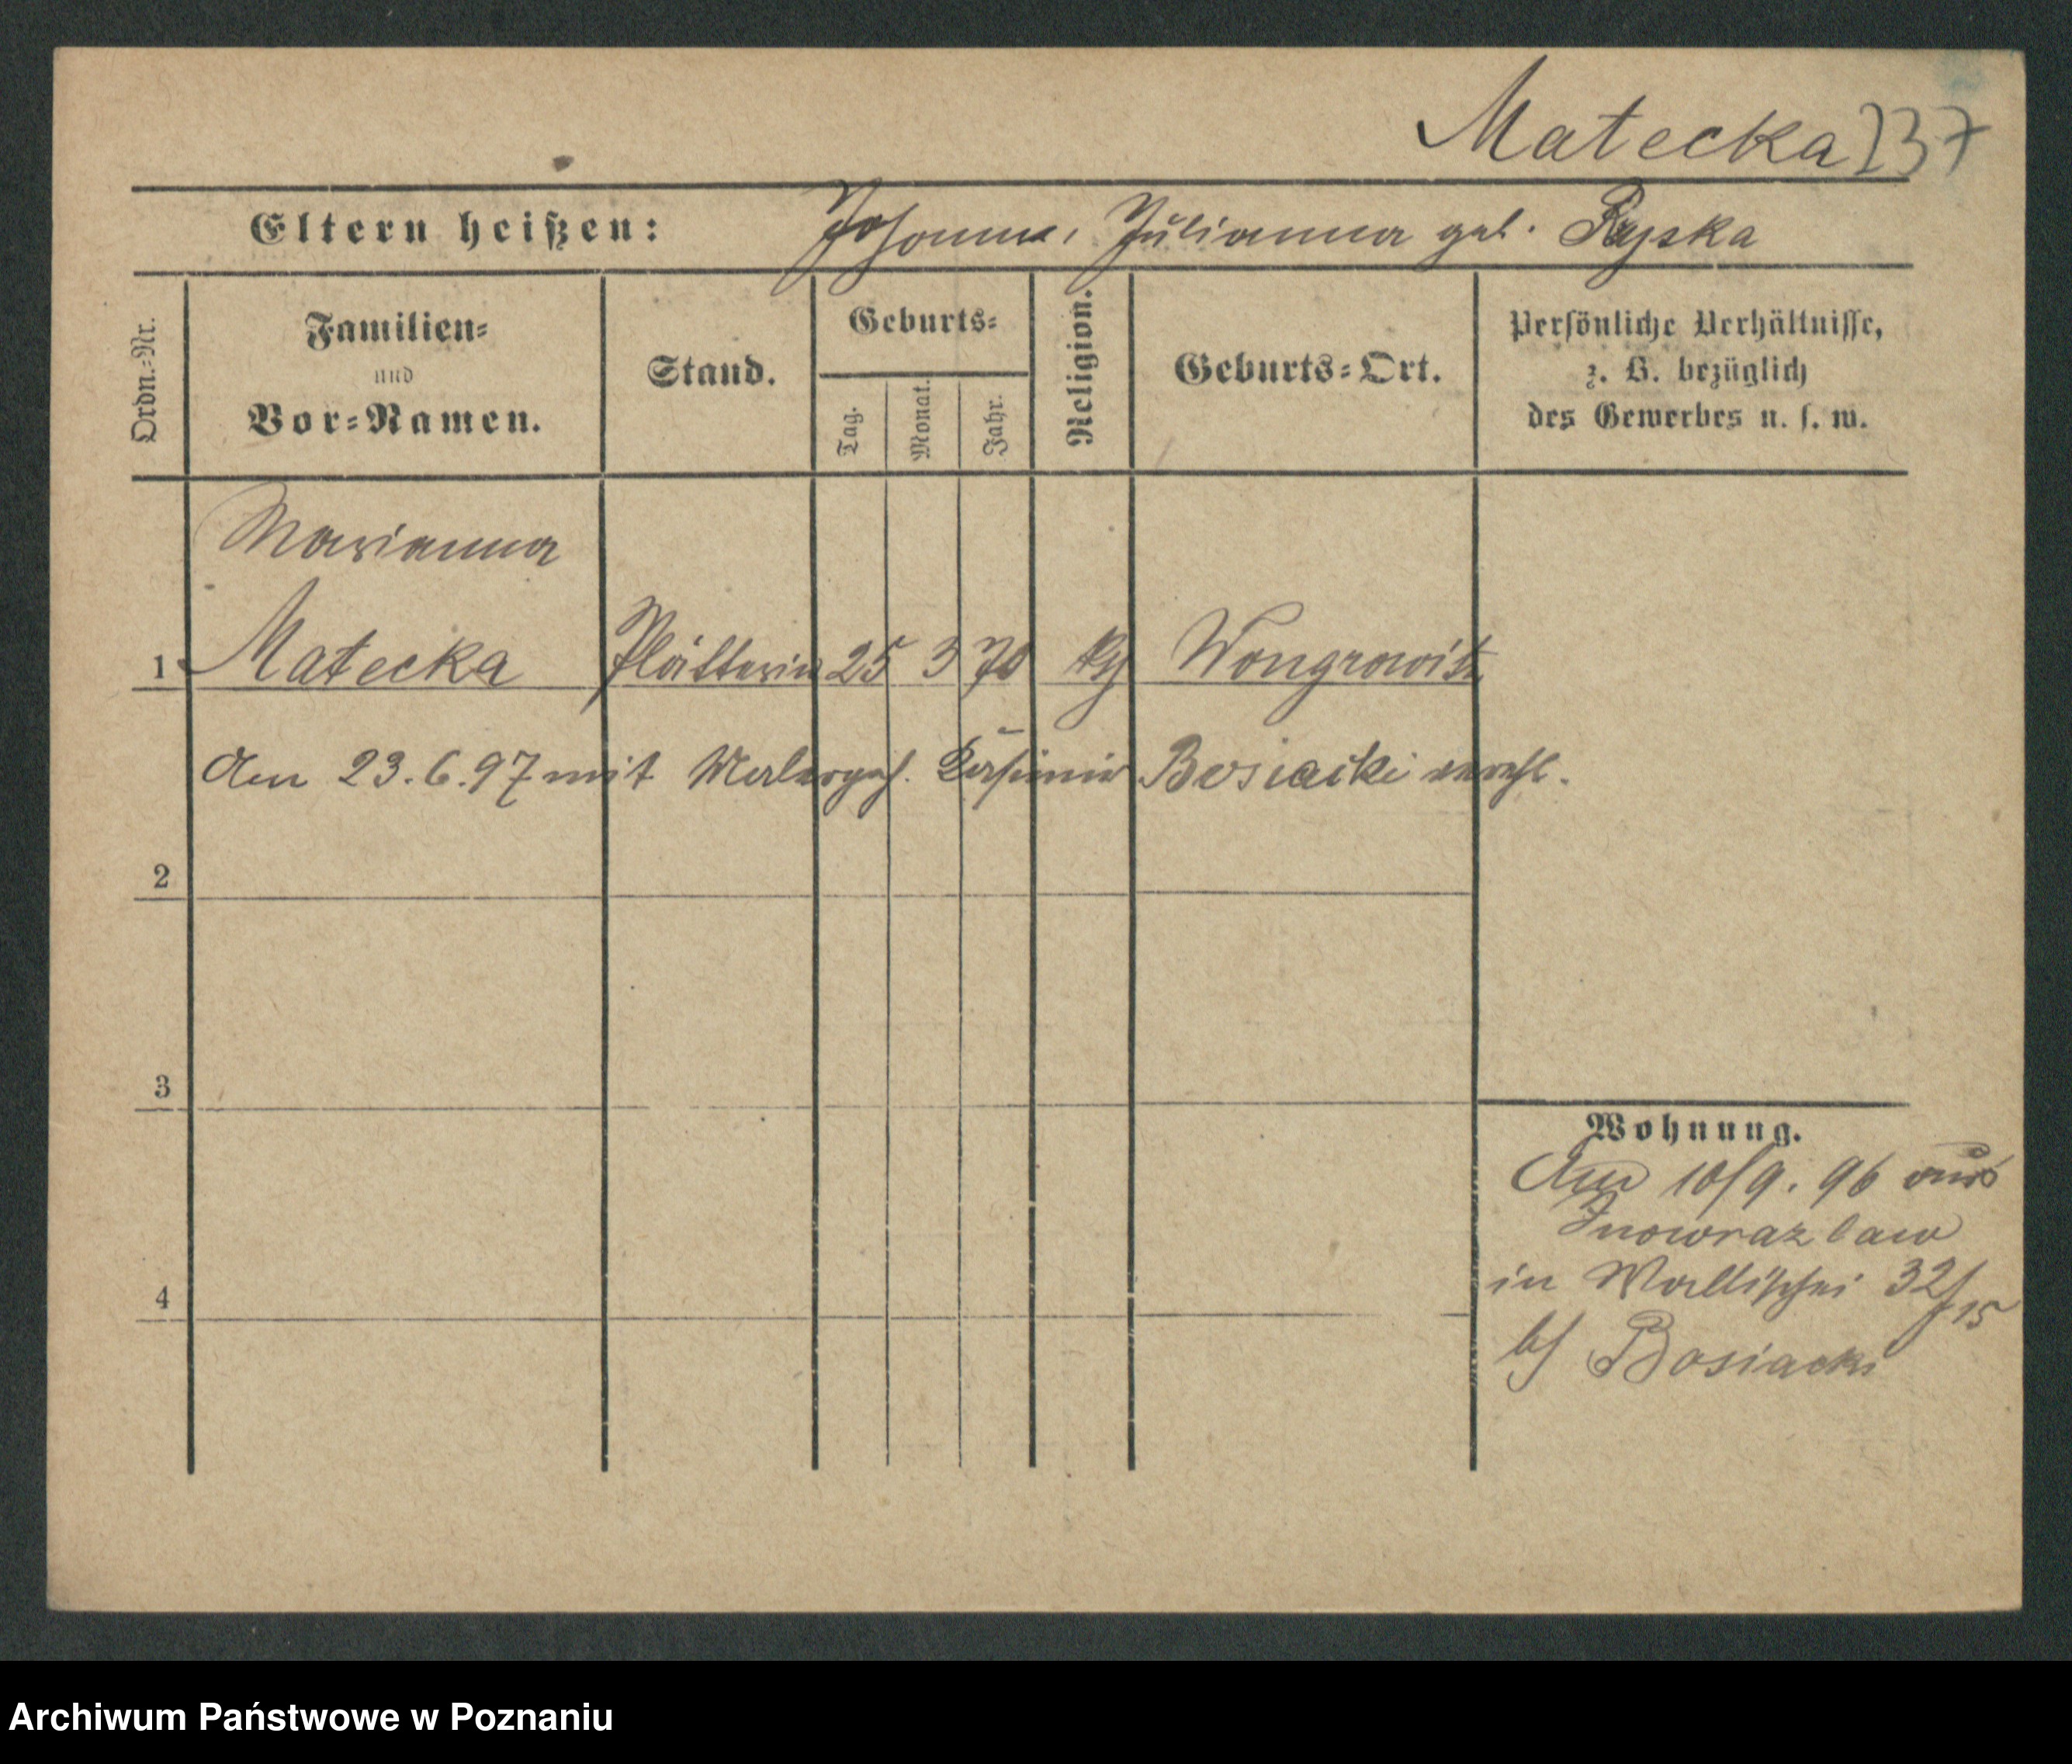 Matecka 237
Eltern heißen: Johann, Julianna geb. Ryska
Ordn.-Nr.
Familien-
und
Vor-Namen.
Stand.
Geburts-
Tag.
Monat.
Jahr.
Religion.
Geburts-Ort.
Persönliche Verhältnisse,
z. B. bezüglich
des Gewerbes u. s. w.
Marianna
1 Matecka Plätterin 25 3 70 Wongrowitz
Am 23.6.97 mit Malergeh. Kasimir Bosiacki verehl.
2
3
4
Wohnung.
Am 10/9. 96 aus
Inowrazlaw
in Wallischei 32/15
b/ Bosiacki
Archiwum Państwowe w Poznaniu